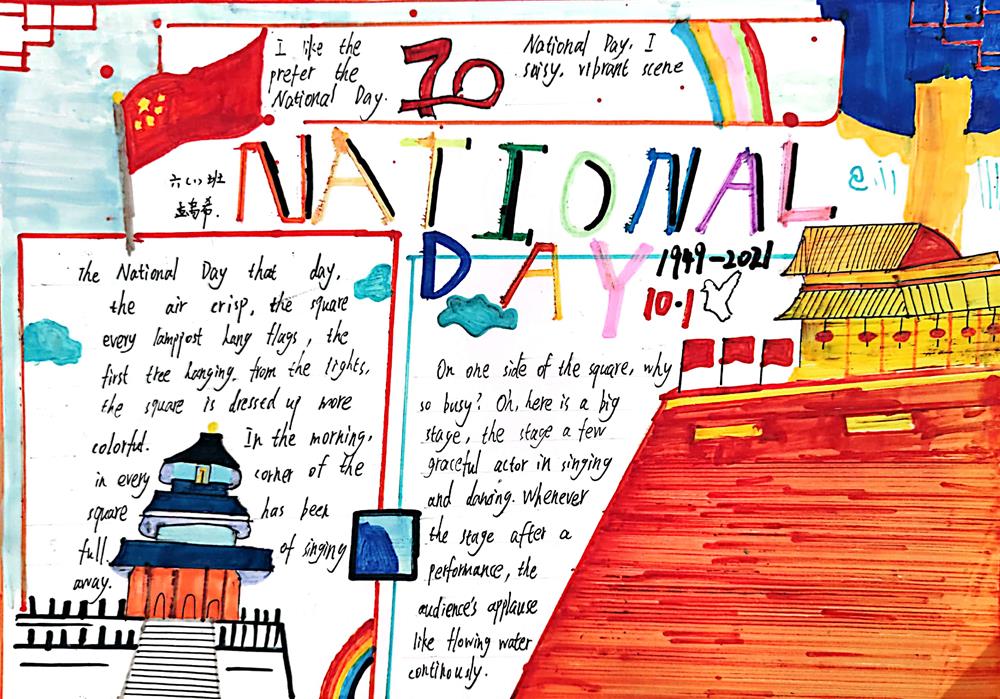 I like the
prefer the
National Day.
70
National Day, I
scene
saisy, vibrant scene
NATIONAL
DAY
六(1)班
1949-2021
10.1
The National Day that day,
the air crisp, the square
every lamppost hang flags, the
first tree hanging. from the lights,
the square is dressed up more
colorful. In the morning,
in every corner of the
square has been
full. of singing
away.
On one side of the square, why
so busy? Oh, here is a big
stage, the stage a few
graceful actor in singing
and dancing. Whenever
the stage after a
performance, the
audience's applause
like flowing water
continously.